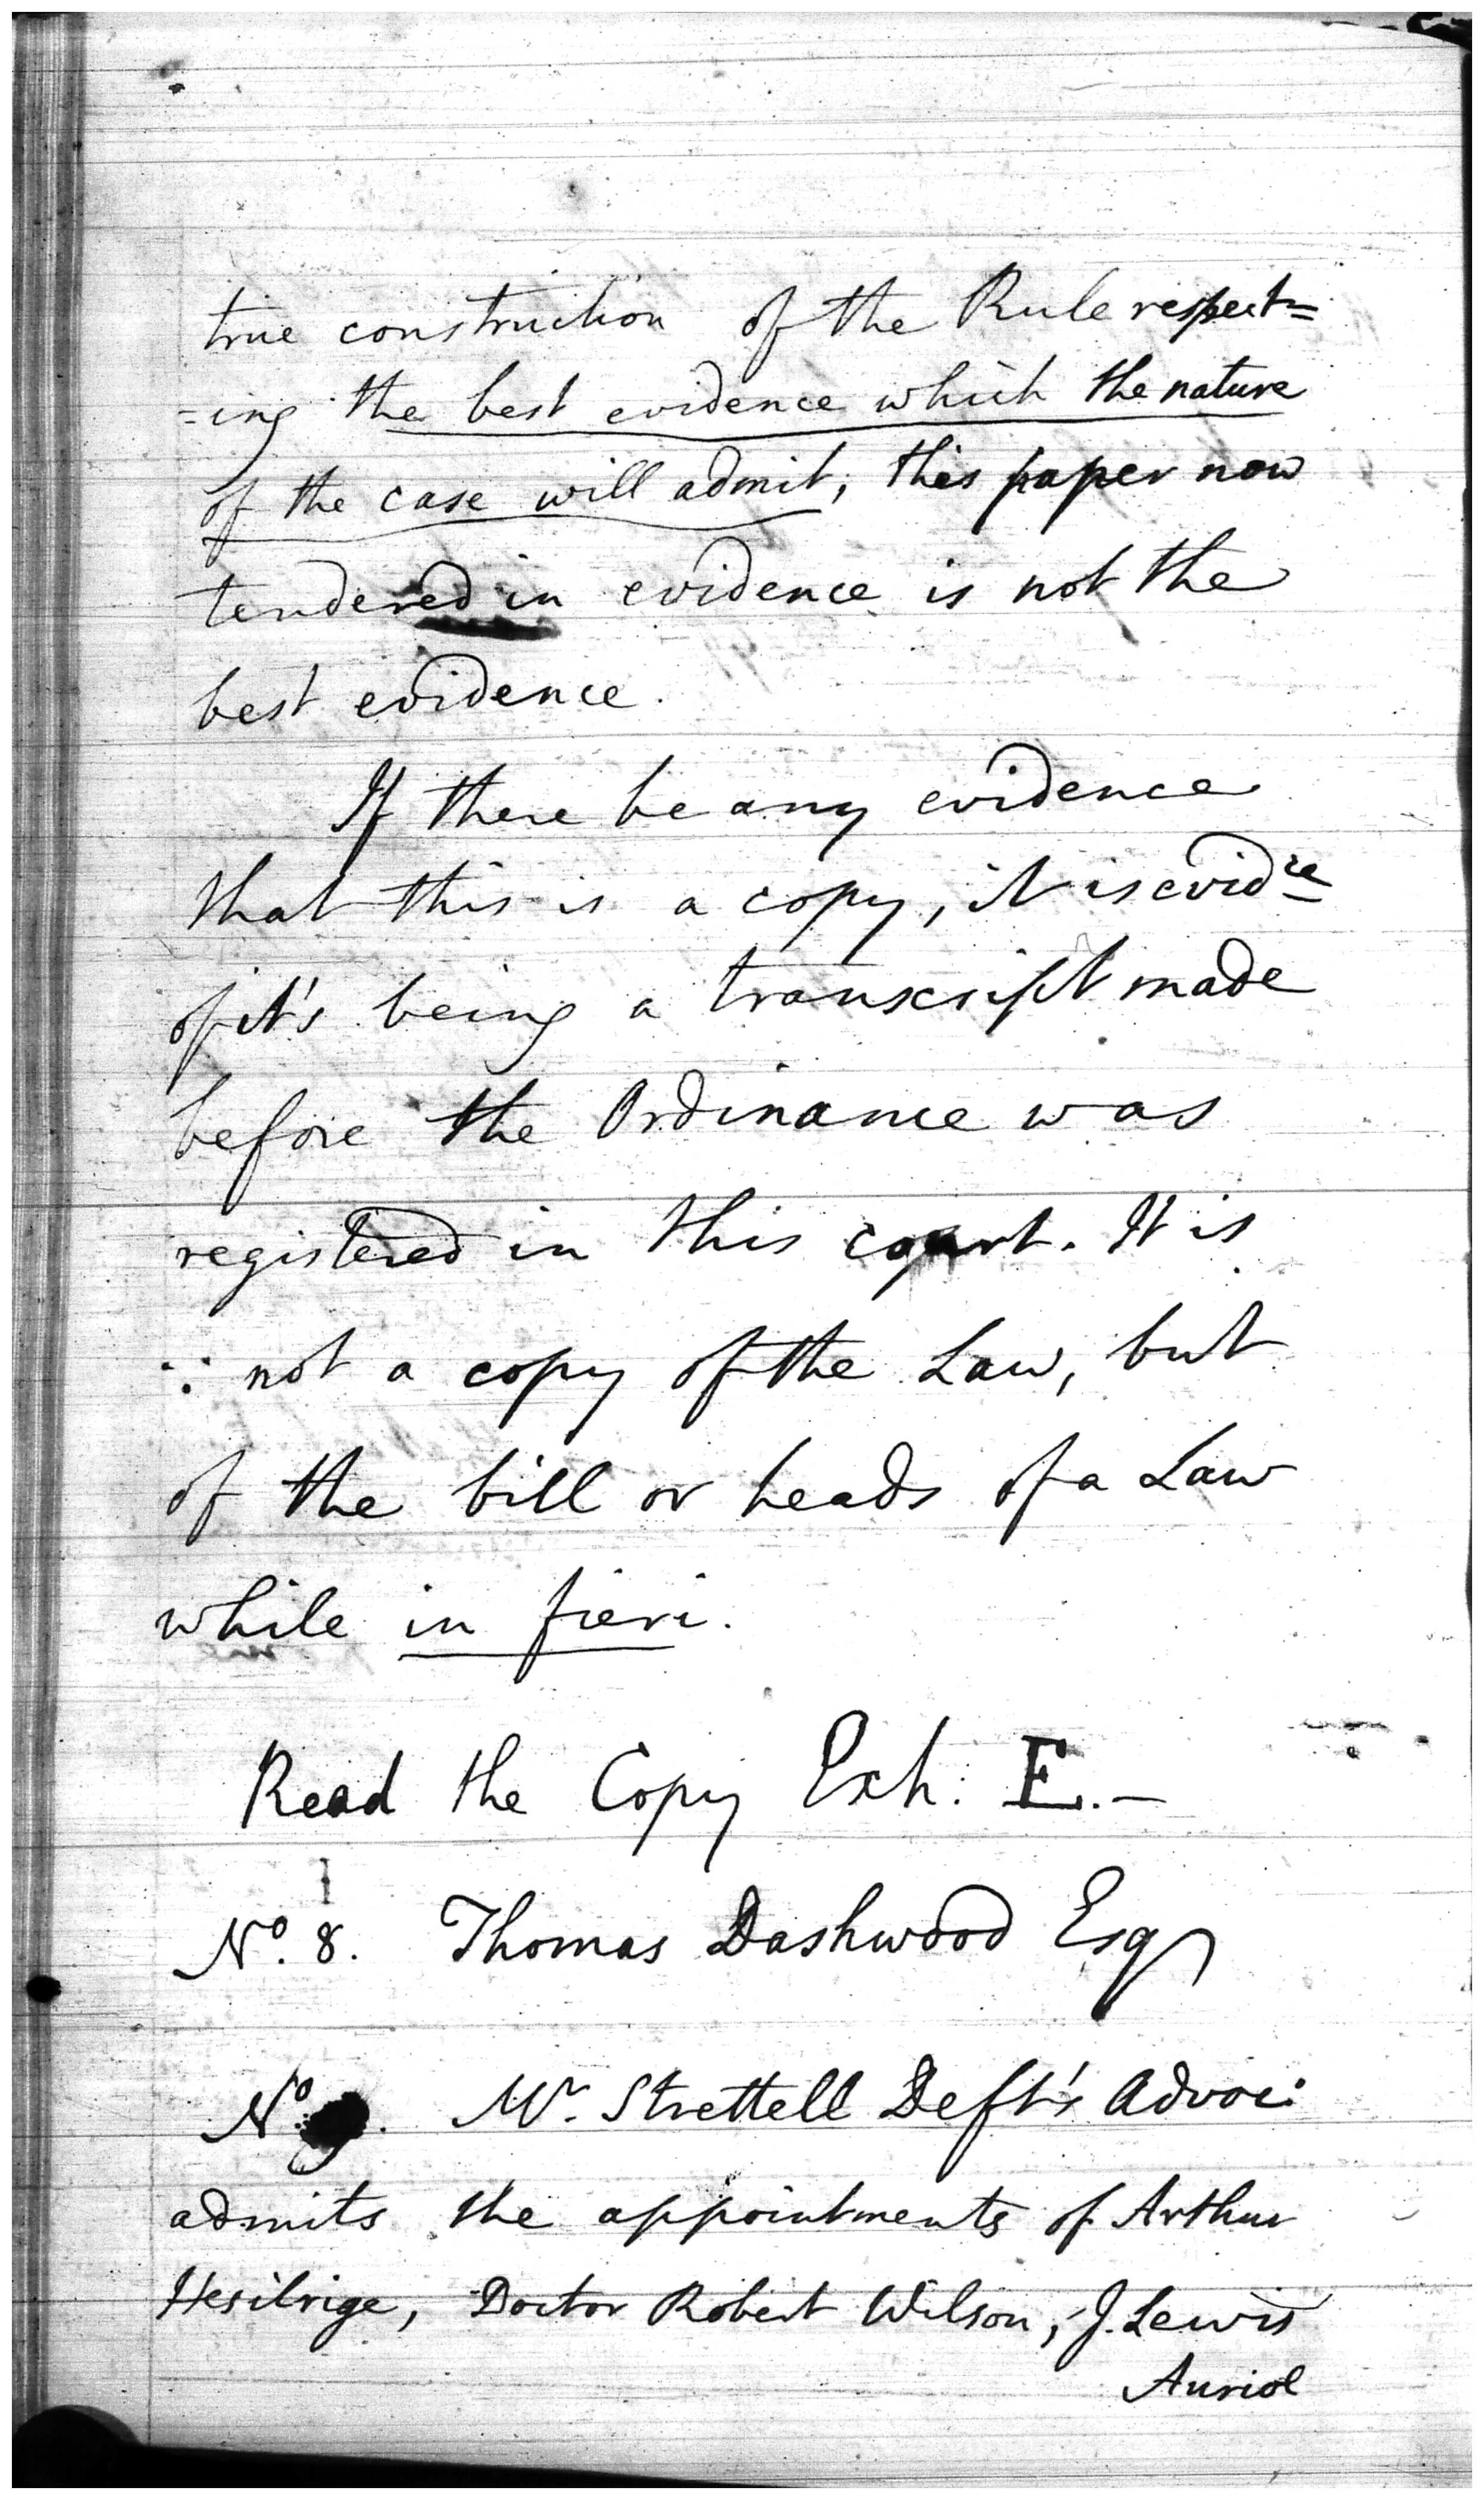 true construction of the Rule respect=
=ing the best evidence which the nature
of the case will admit; this paper now
tendered in evidence is not the
best evidence.
If there be any evidence
that this is a copy, it is evidce
of it's being a transcript made
before the Ordinance was
registered in this court. It is
∴ not a copy of the Law, but
of the bill or heads of a Law
while in fieri.
Read the Copy Exh: E.—
No. 8. Thomas Dashwood Esq
No. Mr. Strettell Deft's Advoc:
admits the appointments of Arthur
Hesilrige, Doctor Robert Wilson, J. Lewis
Auriol